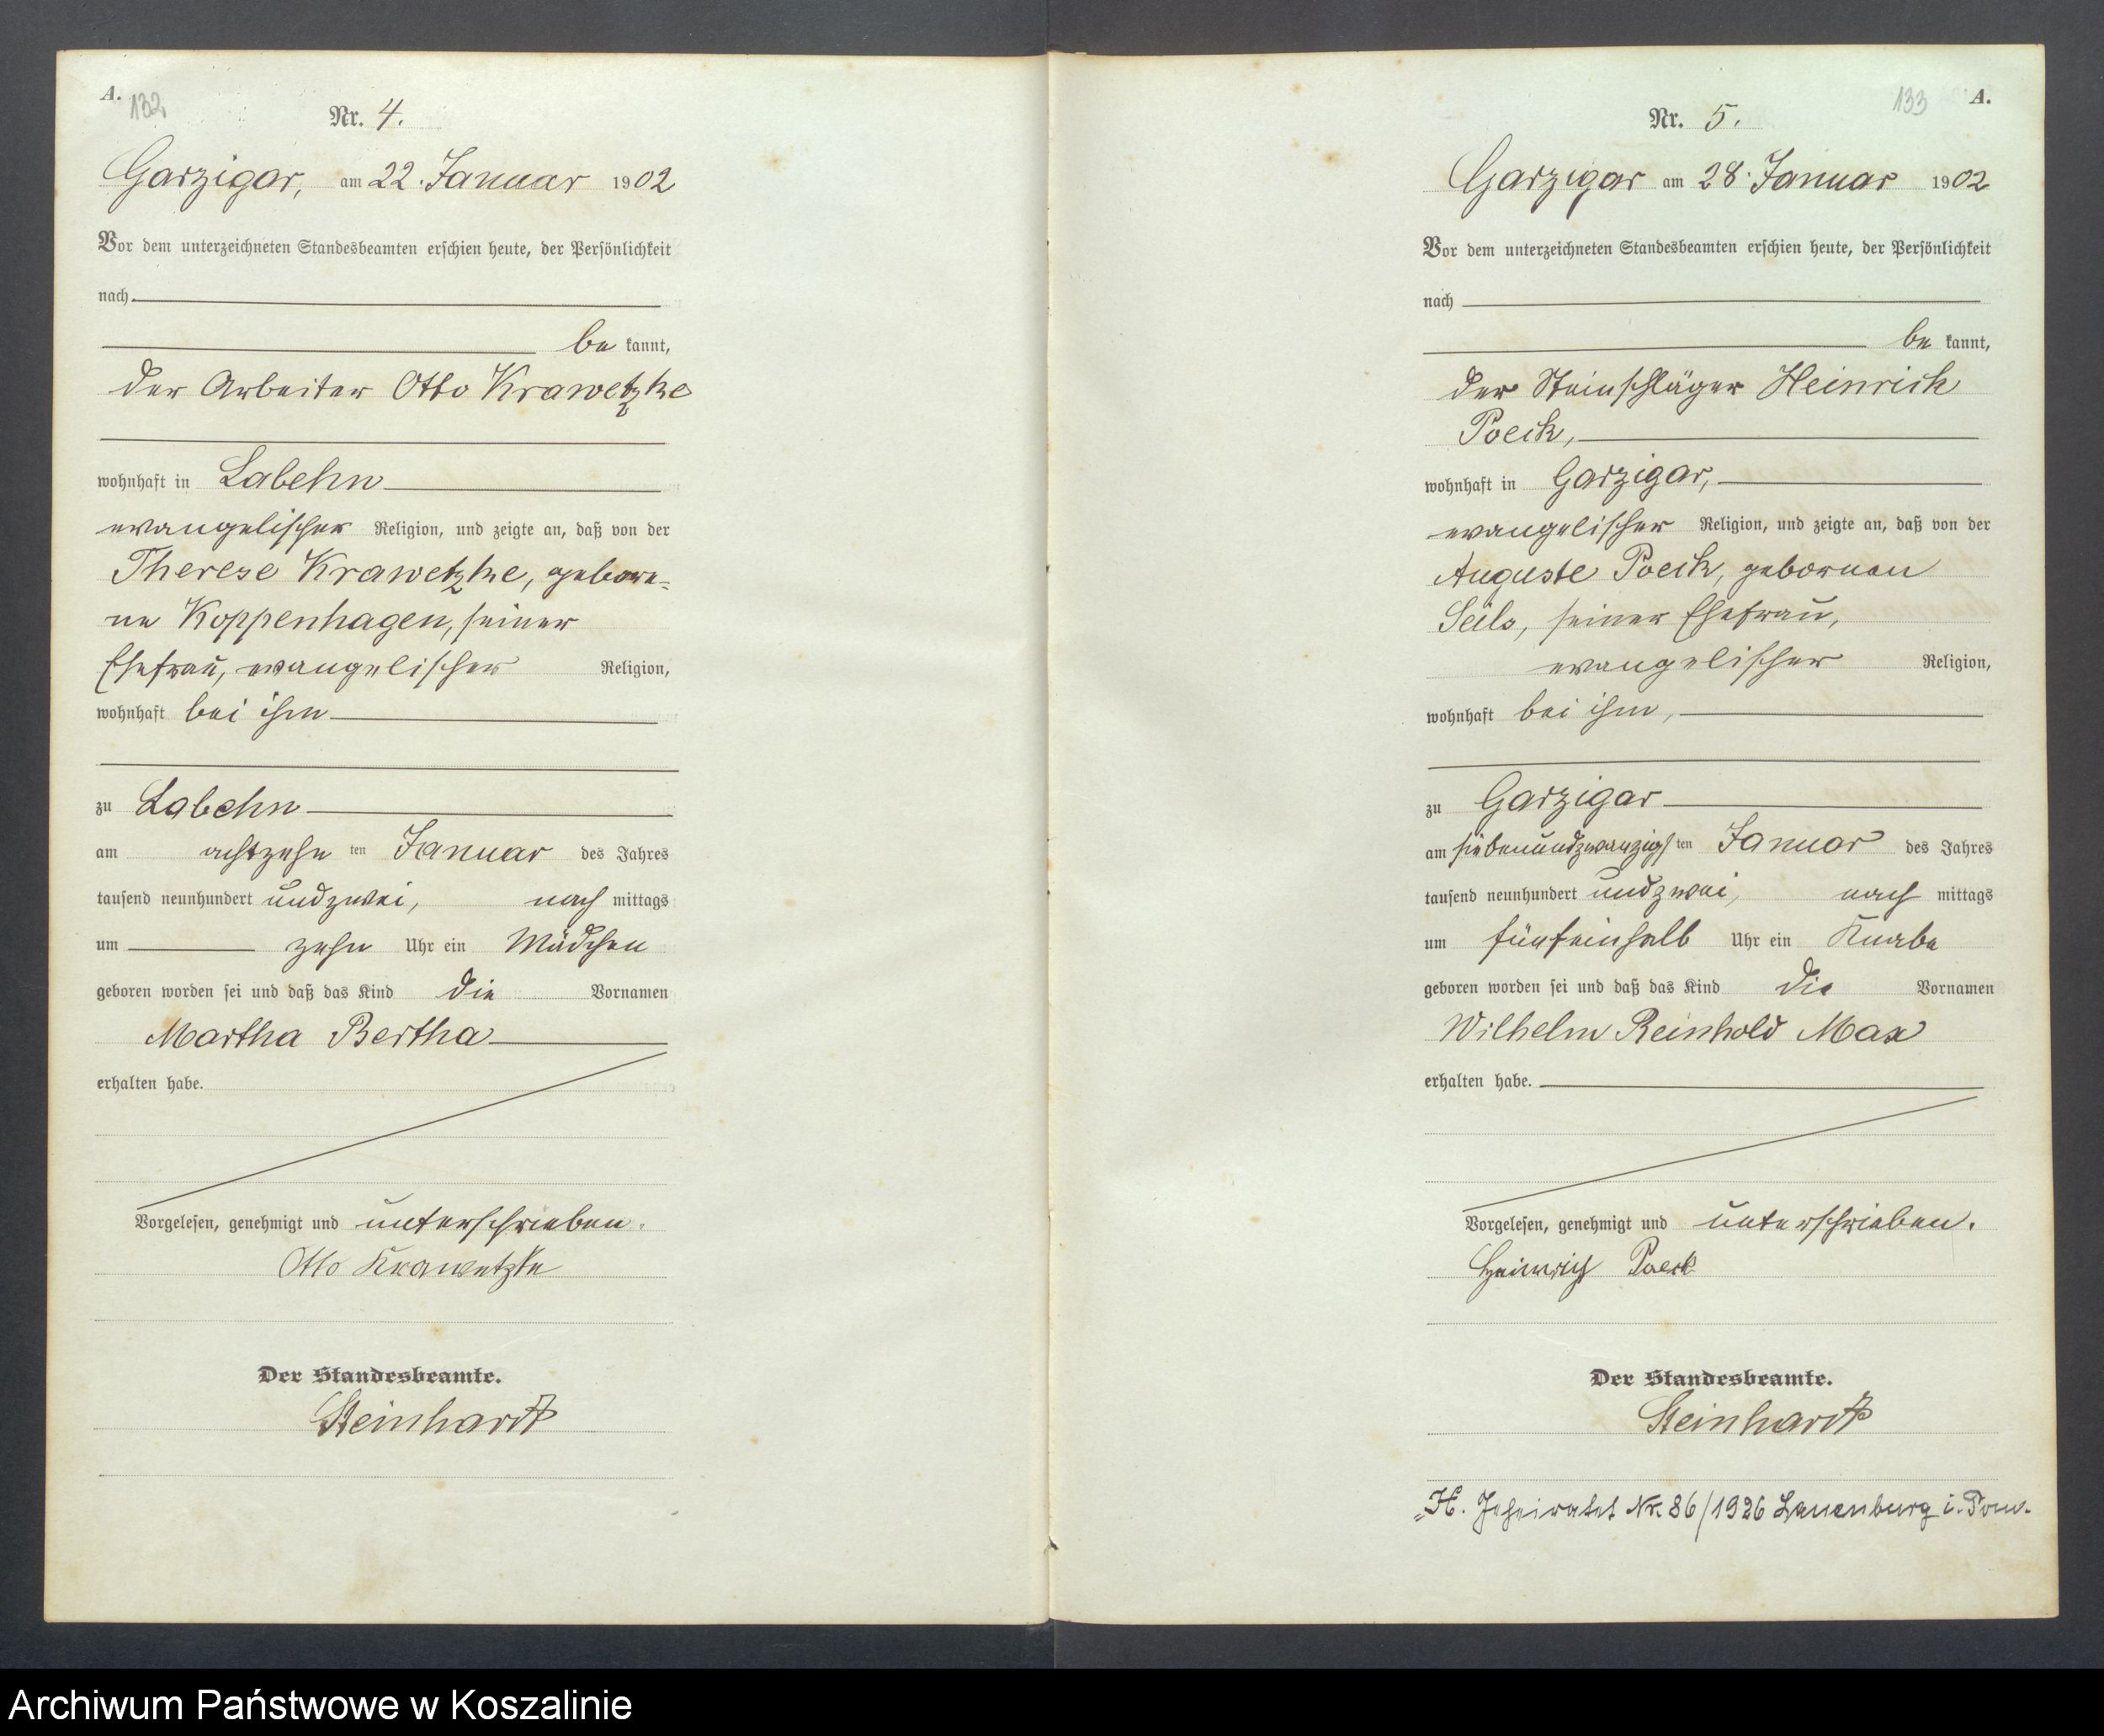 A.
132
Nr. 4.
Garzigar, am 22. Januar 1902
Vor dem unterzeichneten Standesbeamten erschien heute, der Persönlichkeit
nach
be kannt,
der Arbeiter Otto Krawetzke
wohnhaft in Labehn
evangelischer Religion, und zeigte an, daß von der
Therese Krawetzke, gebore-
ne Koppenhagen, seiner
Ehefrau, evangelischer Religion,
wohnhaft bei ihm
zu Labehn
am achtzehn ten Januar des Jahres
tausend neunhundert undzwei, nach mittags
um zehn Uhr ein Mädchen
geboren worden sei und daß das Kind die Vornamen
Martha Bertha
erhalten habe.
Vorgelesen, genehmigt und unterschrieben.
Otto Krawetzke
Der Standesbeamte.
Steinhardt
133 A.
Nr. 5.
Garzigar am 28. Januar 1902
Vor dem unterzeichneten Standesbeamten erschien heute, der Persönlichkeit
nach
be kannt,
der Steinschläger Heinrich
Poeck,
wohnhaft in Garzigar,
evangelischer Religion, und zeigte an, daß von der
Auguste Poeck, gebornen
Seils, seiner Ehefrau,
evangelischer Religion,
wohnhaft bei ihm,
zu Garzigar
am siebenundzwanzigs ten Januar des Jahres
tausend neunhundert undzwei, nach mittags
um fünfeinhalb Uhr ein Knabe
geboren worden sei und daß das Kind die Vornamen
Wilhelm Reinhold Max
erhalten habe.
Vorgelesen, genehmigt und unterschrieben.
Heinrich Poeck
Der Standesbeamte.
Steinhardt
H. Geheiratet Nr. 86/1926 Lauenburg i. Pom.
Archiwum Państwowe w Koszalinie